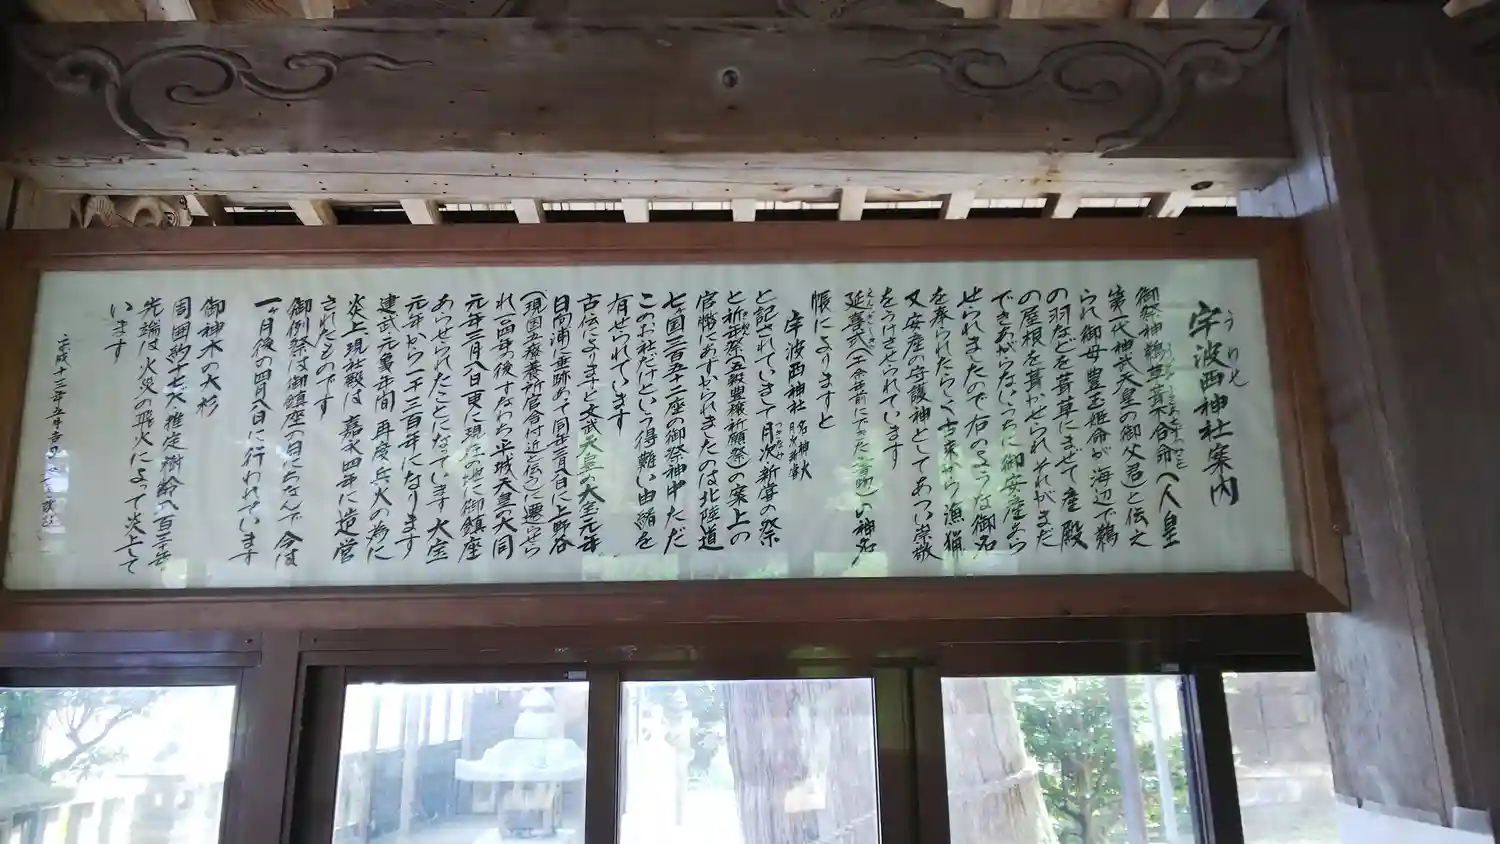 宇波西神社案内
うわせ
御祭神鵜草葺不合命(人皇
第一代神武天皇の御父君と伝え
られ御母豊玉姫命が海辺で鵜
の羽などを葺草にまぜて産殿
の屋根を葺かせられそれがまだ
できあがらないうちに御安産あら
せられましたので右のような御名
を奉られたらしく古来から漁猟
又安産の守護神としてあつい崇敬
をうけさせられています
延喜式(千余年前にできた書物)の神名
帳によりますと
宇波西神社 名神大 月次新嘗
と記されていまして月次新嘗の祭
と祈年祭(五穀豊穣祈願祭)の案上の
官幣にあずかられましたのは北陸道
七ヶ国三百五十二座の御祭神中ただ
このお社だけという得難い由緒を
有せられています
古伝によりますと文武天皇の大宝元年
日向浦に垂跡あって同年二月八日に上野谷
(現国立療養所官舎付近と伝う)に遷らせら
れ一〇四年の後すなわち平城天皇の大同
元年三月八日更に現在の地に御鎮座
あらせられたことになっています 大宝
元年から一千三百年になります
建武元亀年間 再度兵火の為に
炎上、現社殿は 嘉永四年に造営
されたものです
御例祭は御鎮座の日にちなんで今は
一ヶ月後の四月八日に行われています
御神木の大杉
周囲約十七尺 推定樹齢八百三十年
先端は火災の飛火によって炎上して
います
平成十三年五月吉日